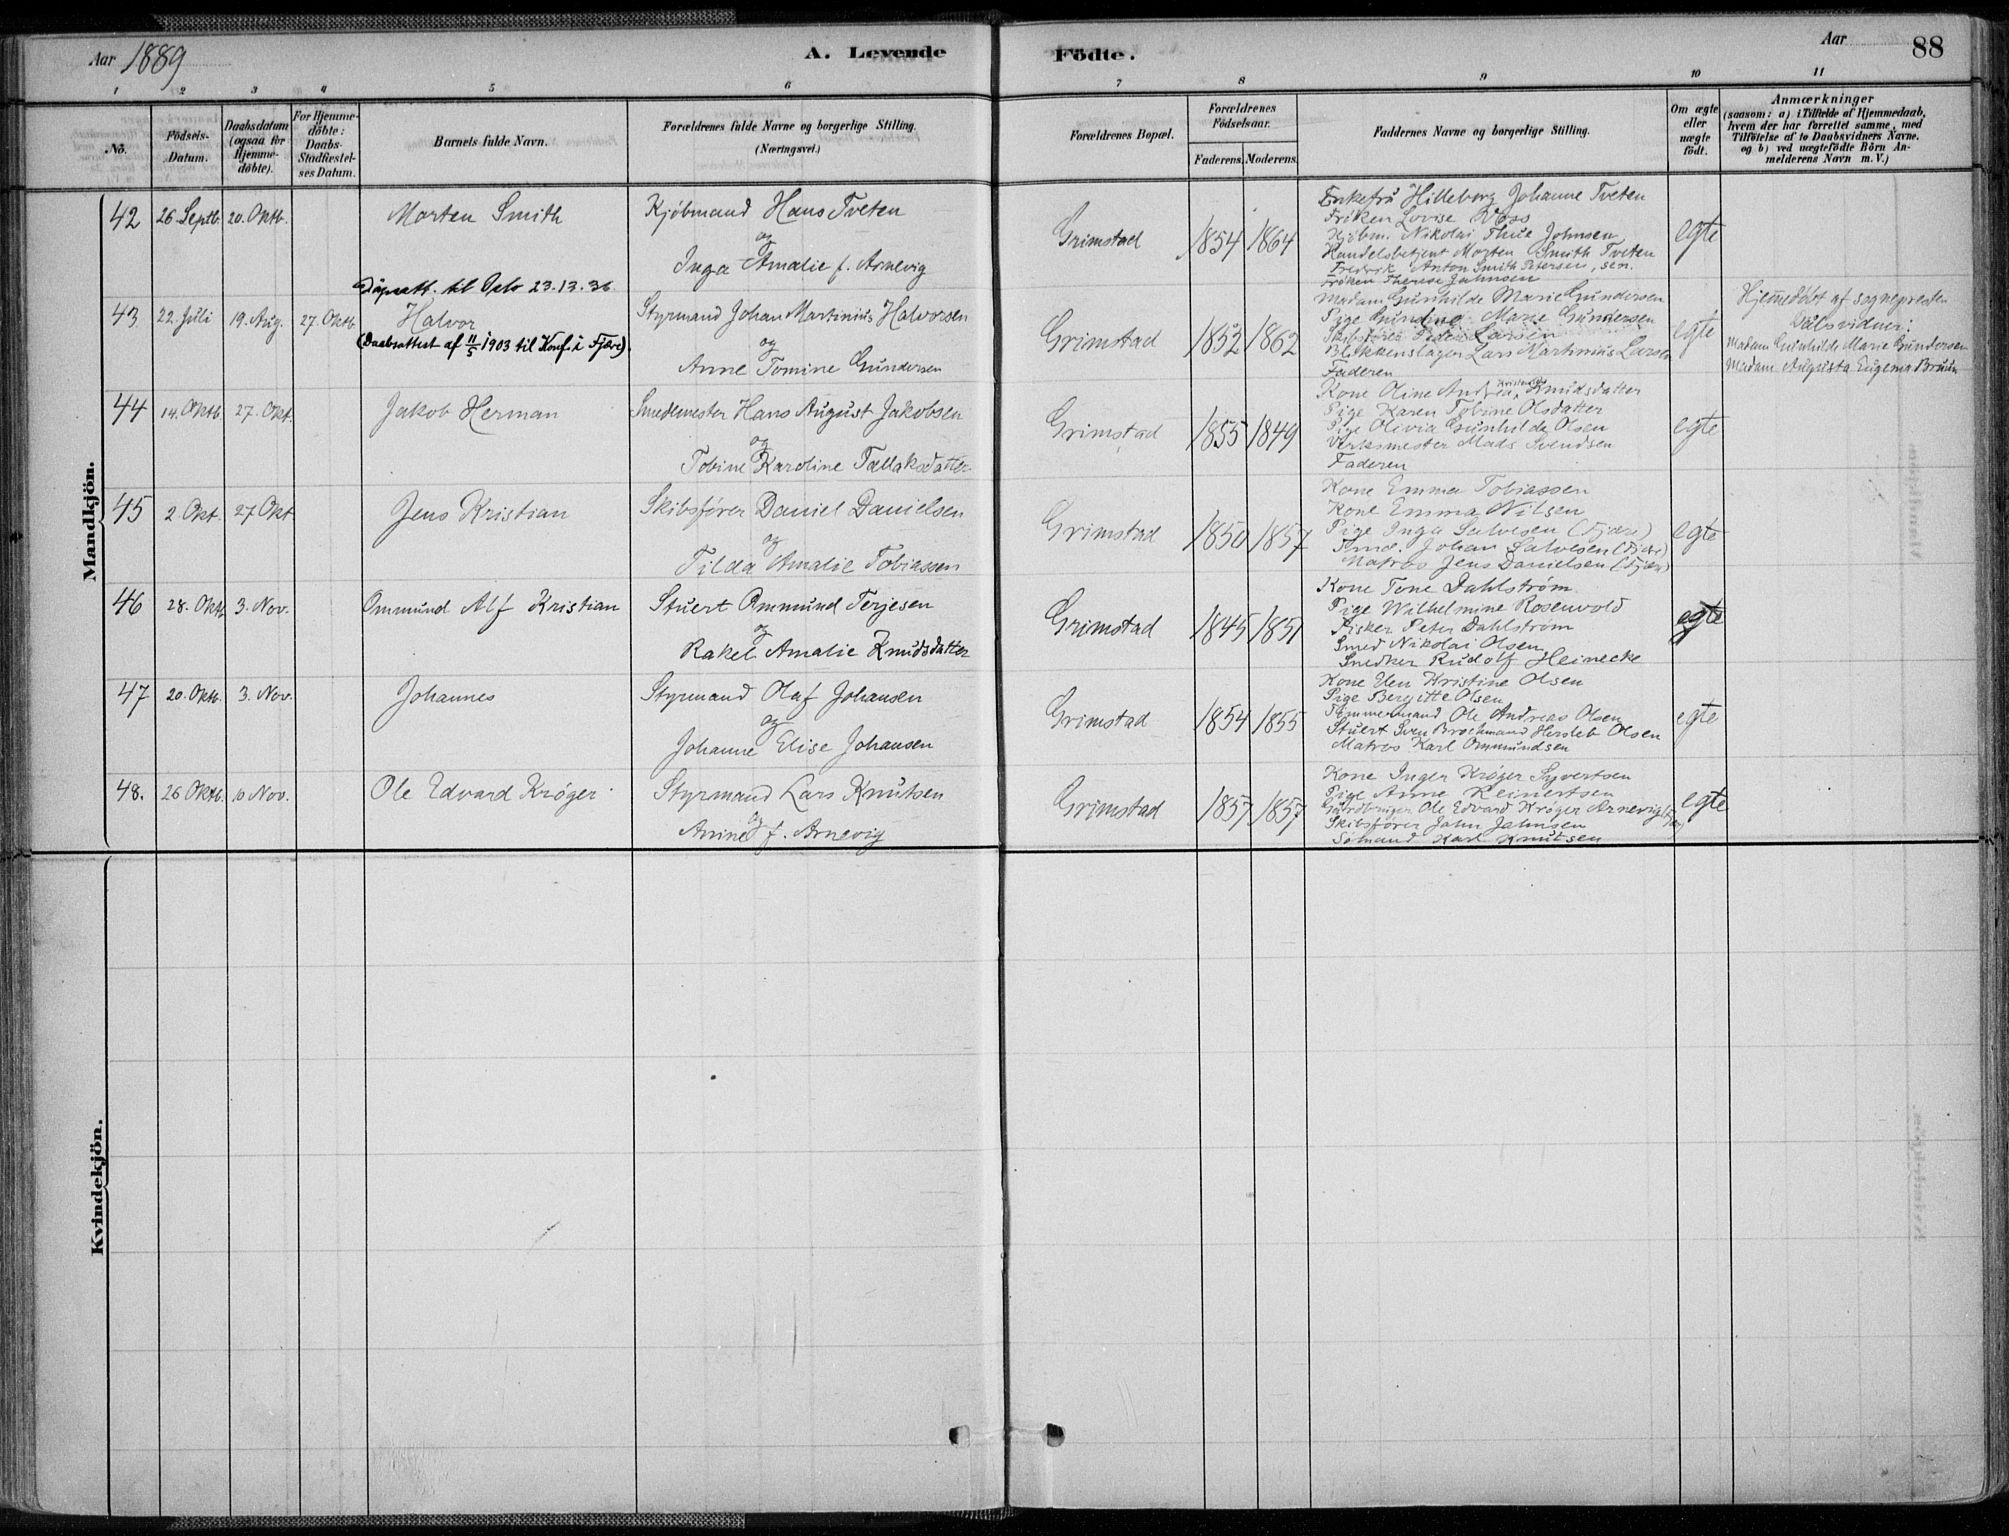 Aar 1889
A. Levende Födte.
Aar
88
1 2 3 4 5 6 7 8 9 10 11
No.
Födsels-
Datum.
Daabsdatum
(ogsaa for
Hjemme-
döbte).
For Hjemme-
döbte:
Daabs-
Stadfæstel-
ses Datum.
Barnets fulde Navn.
Forældrenes fulde Navne og borgerlige Stilling.
(Næringsvei.)
Forældrenes Bopæl.
Forældrenes
Födselsaar.
Faderens. Moderens.
Faddernes Navne og borgerlige Stilling.
Om ægte
eller
uægte
födt.
Anmærkninger
(saasom: a) i Tilfælde af Hjemmedaab,
hvem der har forrettet samme, med
Tilföielse af to Daabsvidners Navne.
og b) ved uægtefödte Börn An-
melderens Navn m. V.)
Mandkjön.
42 26 Septb. 20. Oktb.
Morten Smith
Kjøbmand Hans Tveten
og
Inga Amalie f. Arnevig
Grimstad 1854 1864
Enkefru Hilleborg Johanne Tveten
Frøken Lovise Voss
Kjøbm. Nikolai Thue Johnsen
Handelsbetjent Morten Smith Tveten
Fredrik Anton Smith Petersen, sen.
Frøken Therese Jahnsen
egte
Dåpsatt. til Oslo 23.13.36
43 22. Juli 19. Aug. 27. Oktb
Halvor
(Daabsattest af 11/5 1903 til Konf. i Fjære).
Styrmand Johan Martinius Halvorsen
og
Anne Tomine Gundersen
Grimstad 1852 1862
Madam Gunhilde Marie Gundersen
Pige Gundine Marie Gundersen
Skibsfører Peder Larsen
Blokkenslager Lars Martinius Larsen
Faderen
egte
Hjemmedøbt af sognepresten
Dåbsvidner:
Madam Gunhilde Marie Gundersen
Madam Augusta Eugenia Bruun
44 14. Oktb 27. Okt.
Jakob Herman
Smedmester Hans August Jakobsen
og
Tobine Karoline Tallaksdatter
Grimstad 1855 1849
Kone Oline Andrea Knudsdatter
Pige Karen Tobine Olsdatter
Pige Olivia Gunhilde Olsen
Verksmester Mads Svendsen
Faderen
egte
45 2. Okt. 27 Okt
Jens Kristian
Skibsfører Daniel Danielsen
og
Tilda Amalie Tobiassen
Grimstad 1850 1857
Kone Emma Tobiassen
Kone Emma Nilsen
Pige Inga Salvesen (Fjære)
Tømd. Johan Salvesen (Fjære)
Matros Jens Danielsen (Fjære)
egte
46 28. Okt. 3. Nov.
Ommund Alf Kristian
Stuert Ommund Terjesen
og
Rakel Amalie Knudsdatter
Grimstad 1845 1851
Kone Tone Dahlstrøm
Pige Wilhelmine Rosenvold
Fisker Peter Dahlstrøm
Smed Nikolai Olsen
Snedker Rudolf Heinecke
egte
47 20. Oktb. 3. Nov.
Johannes
Styrmand Olaf Johansen
og
Johanne Elise Johansen
Grimstad 1854 1855
Kone Elen Kristine Olsen
Pige Bergitte Olsen
Tømmermand Ole Andreas Olsen
Stuert Sven Brochmand Hersleb Olsen
Matros Karl Ommundsen
egte
48. 26 Oktb. 10 Nov.
Ole Edvard Krøger
Styrmand Lars Knutsen
og
Anine f. Arnevig
Grimstad 1857 1857
Kone Inger Krøger Syvertsen
Pige Anne Reinertsen
Gårdbruger Ole Edvard Krøger Arnevig (Fjære)
Skibsfører Jahn Jahnsen
Sømand Karl Knutsen
egte
Kvindekjön.